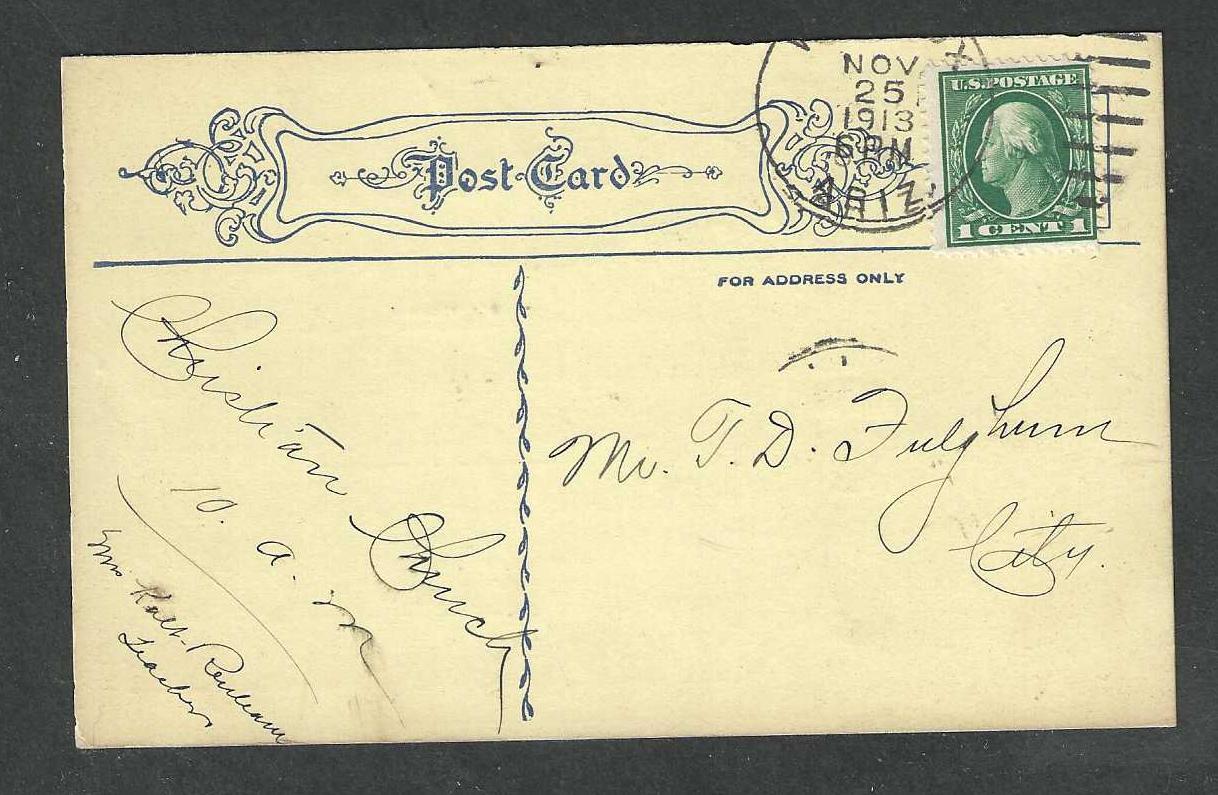 Post Card
NOV
25
1913
6 PM
ARIZ.
U.S. POSTAGE
1 CENT 1
FOR ADDRESS ONLY
Christian Church
10. a. m
Mrs
Teacher
Mr. T. D. Fulghum
City.